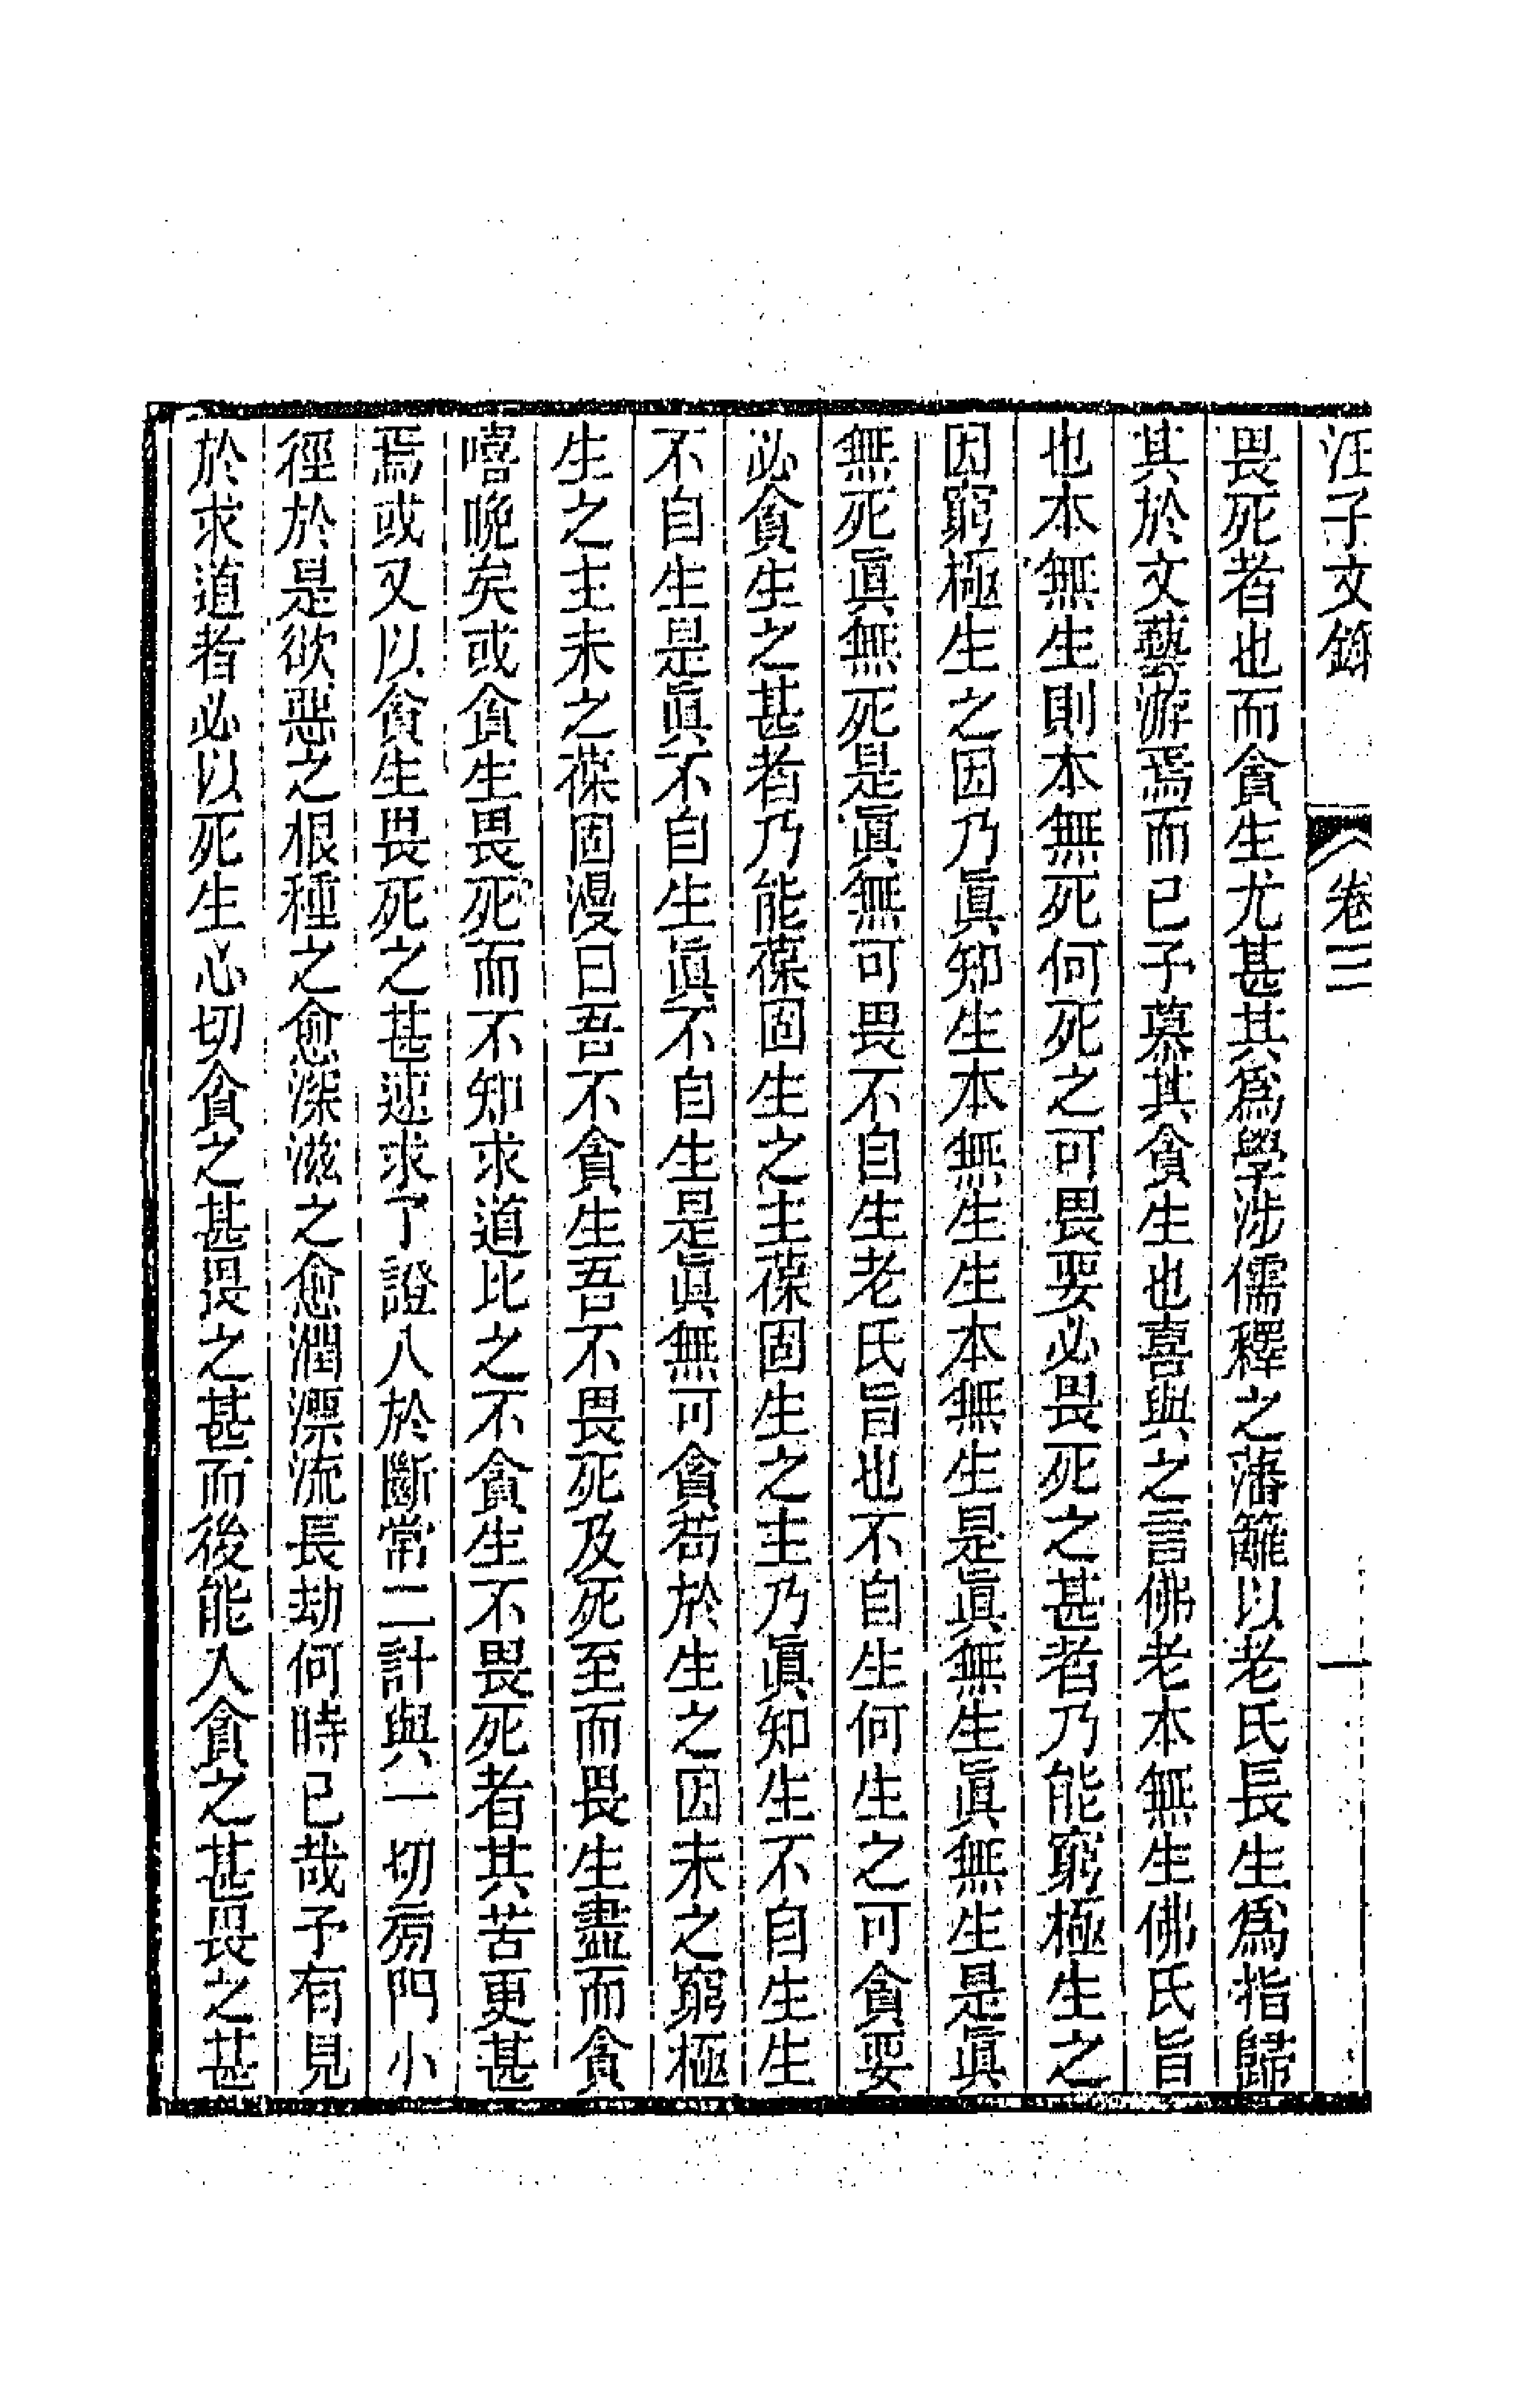 汪子文錄 卷三 一
畏死者也而貪生尤甚其爲學涉儒釋之藩籬以老氏長生爲指歸
其於文藝游焉而已子慕其貪生也喜與之言佛老本無生佛氏旨
也本無生則本無死何死之可畏要必畏死之甚者乃能窮極生之
因窮極生之因乃眞知生本無生生本無生是眞無生眞無生是眞
無死眞無死是眞無可畏不自生老氏旨也不自生何生之可貪要
必貪生之甚者乃能葆固生之主葆固生之主乃眞知生不自生生
不自生是眞不自生眞不自生是眞無可貪苟於生之因未之窮極
生之主未之葆固漫曰吾不貪生吾不畏死及死至而畏生盡而貪
嘻晚矣或貪生畏死而不知求道比之不貪生不畏死者其苦更甚
焉或又以貪生畏死之甚速求了證入於斷常二計與一切旁門小
徑於是欲惡之根種之愈深滋之愈潤漂流長劫何時已哉予有見
於求道者必以死生心切貪之甚畏之甚而後能入貪之甚畏之甚